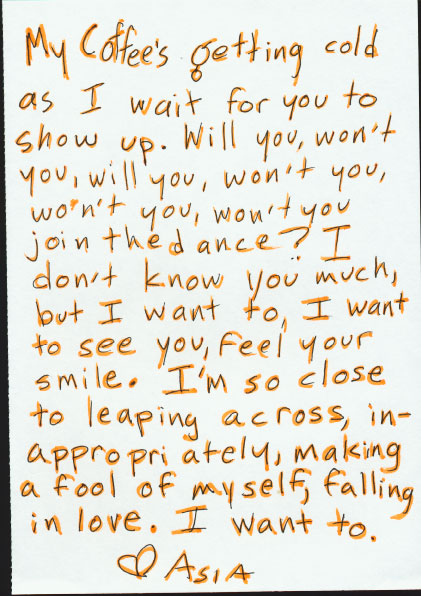 My Coffee's getting cold
as I wait for you to
show up. Will you, won't
you, will you, won't you,
won't you, won't you
join the dance? I
don't know you much,
but I want to, I want
to see you, feel your
smile. I'm so close
to leaping across, in-
appropriately, making
a fool of myself, falling
in love. I want to.
♡ Asia